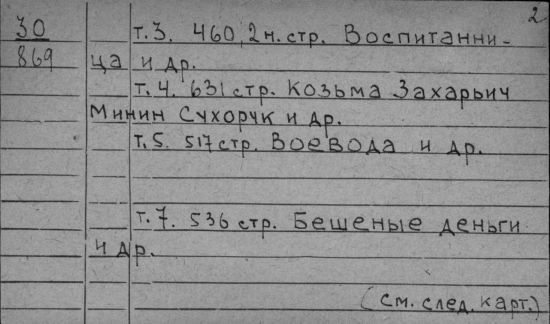 2
30 т.3. 460,2н.стр. Воспитанни-
869 ца и др.
т.4. 631стр. Козьма Захарьич
Минин Сухорук и др.
т.5. 517стр. Воевода и др.
т.7. 536 стр. Бешеные деньги
и др.
(см. след. карт.)